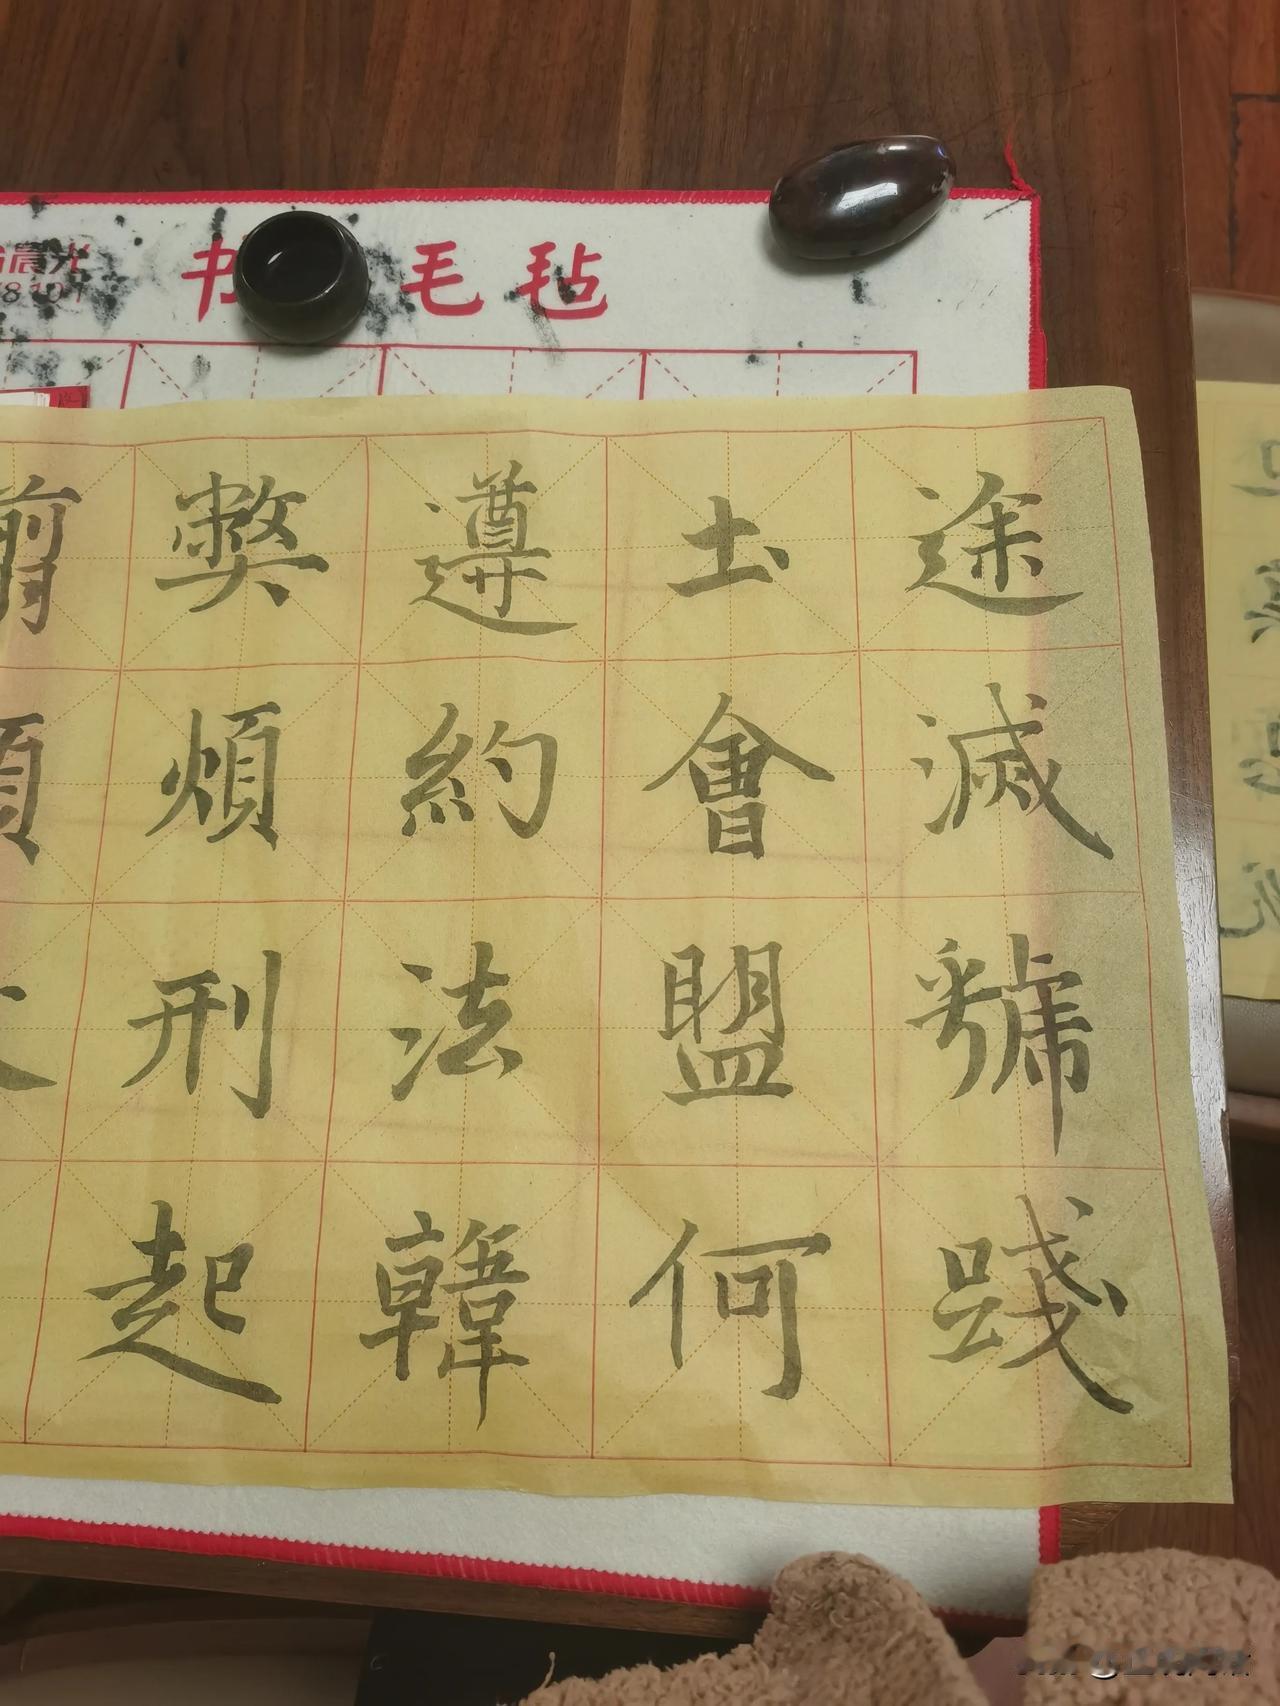 晨光
书 毛毡
途滅虢踐
土會盟何
遵約法韓
弊煩刑起
翦